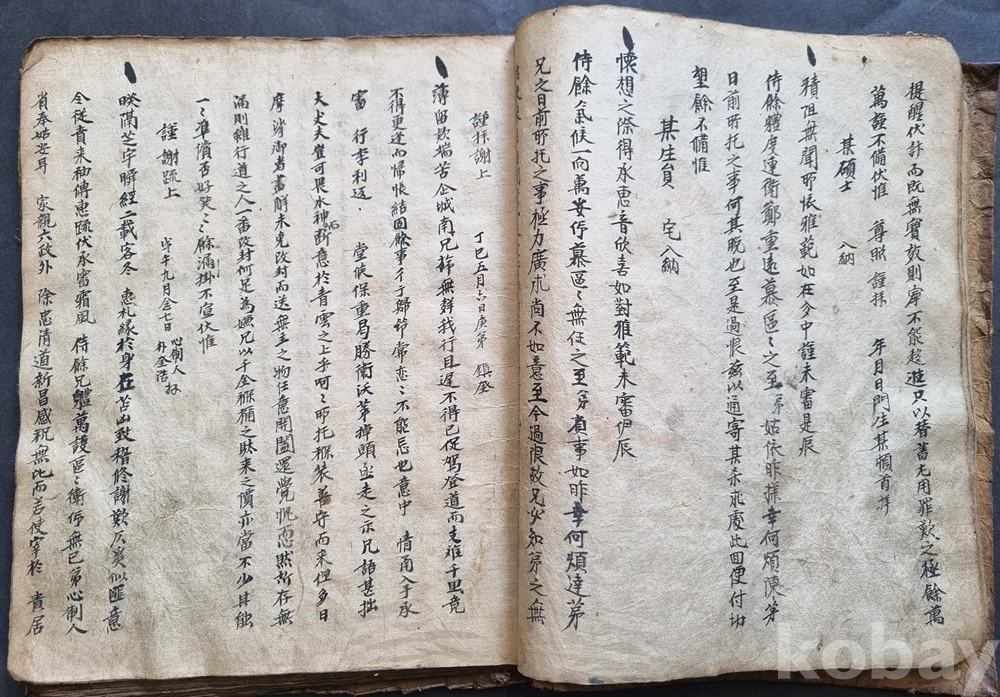 提醒伏計而旣無實效則寧不能趁進只以替書尤用罪歎之極餘萬
萬謹不備伏惟 尊照 謹拜 年月日門生某頓首拜
某碩士 入納
積阻無聞耶悵雅範如在夕中謹未審是辰
侍餘體度連衛鄭重遠慕區〻之至弟姑依昨樣幸何煩陳第
日前所托之事何其脫也至是過恨茲以通寄某未求處此回便付功
望餘不備惟
某生員 宅入納
懷想之際得承惠音欣喜如對雅範未審伊辰
侍餘氣候一向萬安仰慕區〻無任之至弟省事如昨幸何煩達第
兄之日前所托之事極力廣求尚不如意至今過恨故兄必知弟之無
謹拜謝上 丁巳五月 日庚弟
薄留欺端苦企城南兄辭無群我行且遲不得已促駕登道而支難千里竟
不得更逢而歸悵結固餘事 歸節常恋〻不能忘也意中 情甫入手承
審 行李利返 堂候保重局勝衛沃弟掉頭亟走之示兄語甚拙
大丈夫豈可畏水神而斷意於青雲之上乎呵〻耶托 裝善守而來但多日
摩 御者書解未免改封而送無主之物任意開闔還覺慨恧然所存無
滿則雖行道之人一番改封何足為嫌兄以千金 稱之賕來之價亦當不少其能
一〻準償否好笑〻餘漏掛不宣伏惟
謹謝疏上 午九月念七日 心制人朴 浩 拜
暎隔芝宇瞬經二載客冬 惠札緣於身在苦山致稽修謝歎仄矣似匪意
今從貴來袖傳惠疏伏承審霜風 侍餘兄體萬護區〻衛仰無已弟心制人
省奉姑安耳 家親六政外 除忠清道新昌感祝無比而若使宰於 貴居
kobay